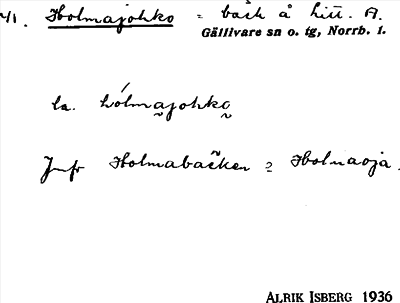 7/1. Holmajohko = bäck å hitt. A.
Gällivare sn o. tg, Norrb. l.
la. hólmajohko
Jmfr Holmabäcken = Holmaoja.
ALRIK ISBERG 1936